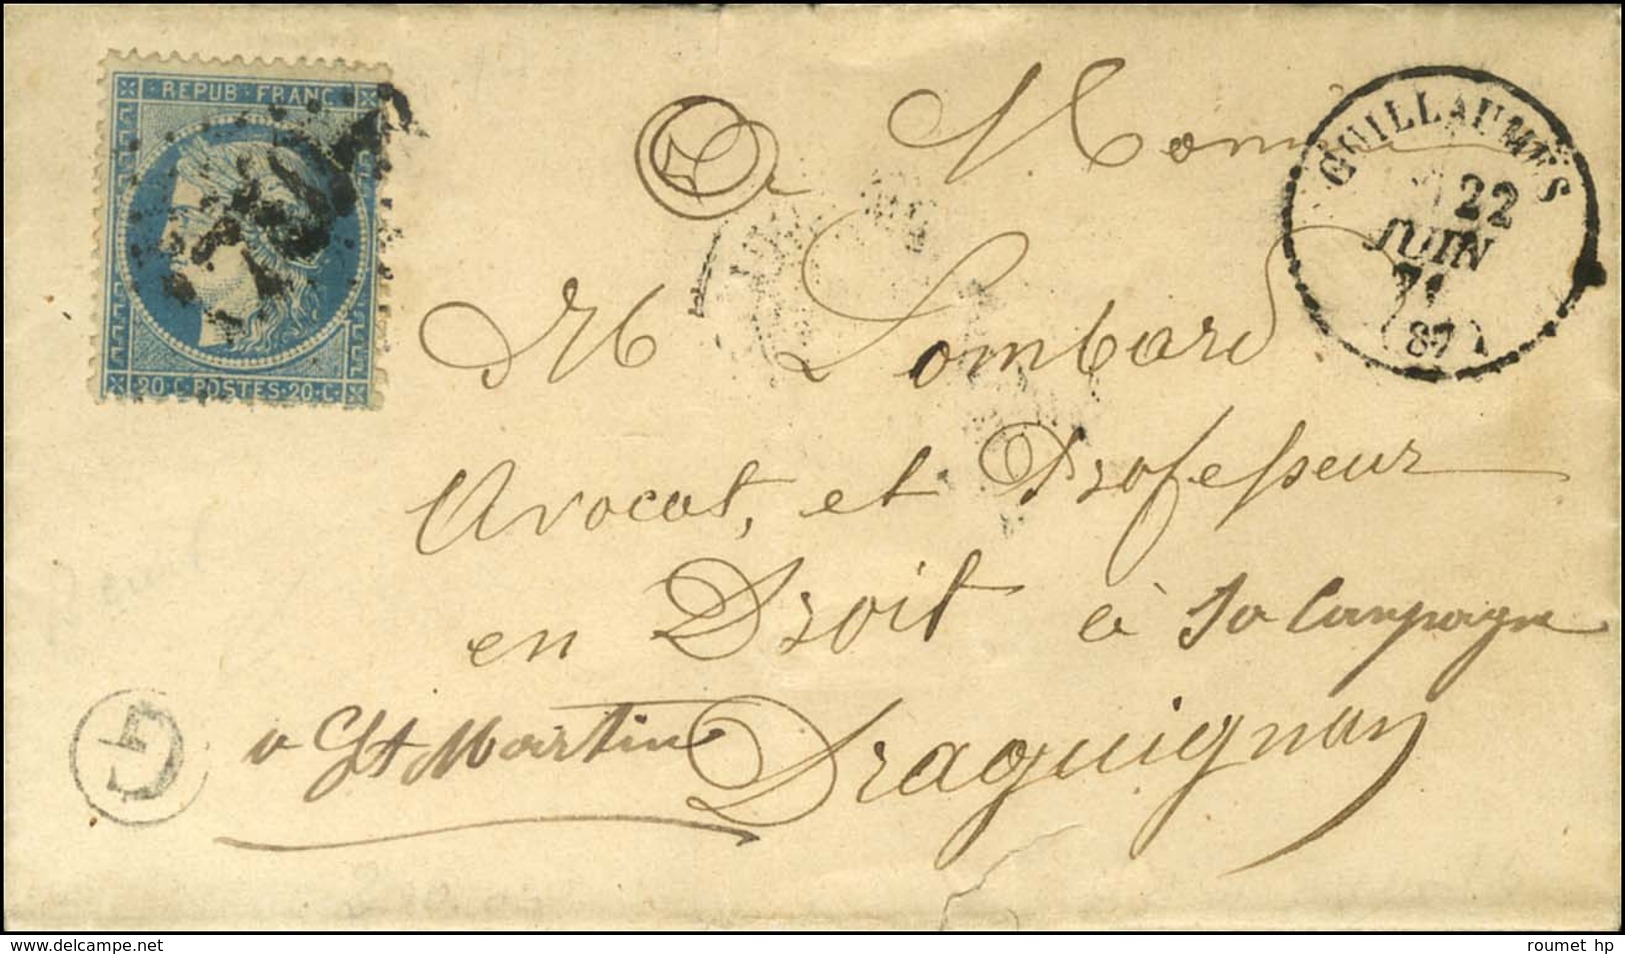 REPUB·FRANC
20·C·POSTES·20·C·
GUILLAUMES
22
JUIN
71
(87)
A Monsieur
Mr Lombard
Avocat, et Professeur
en Droit à Sa Campagne
a St Martin Draguignan
G
www.delcampe.net
roumet hp